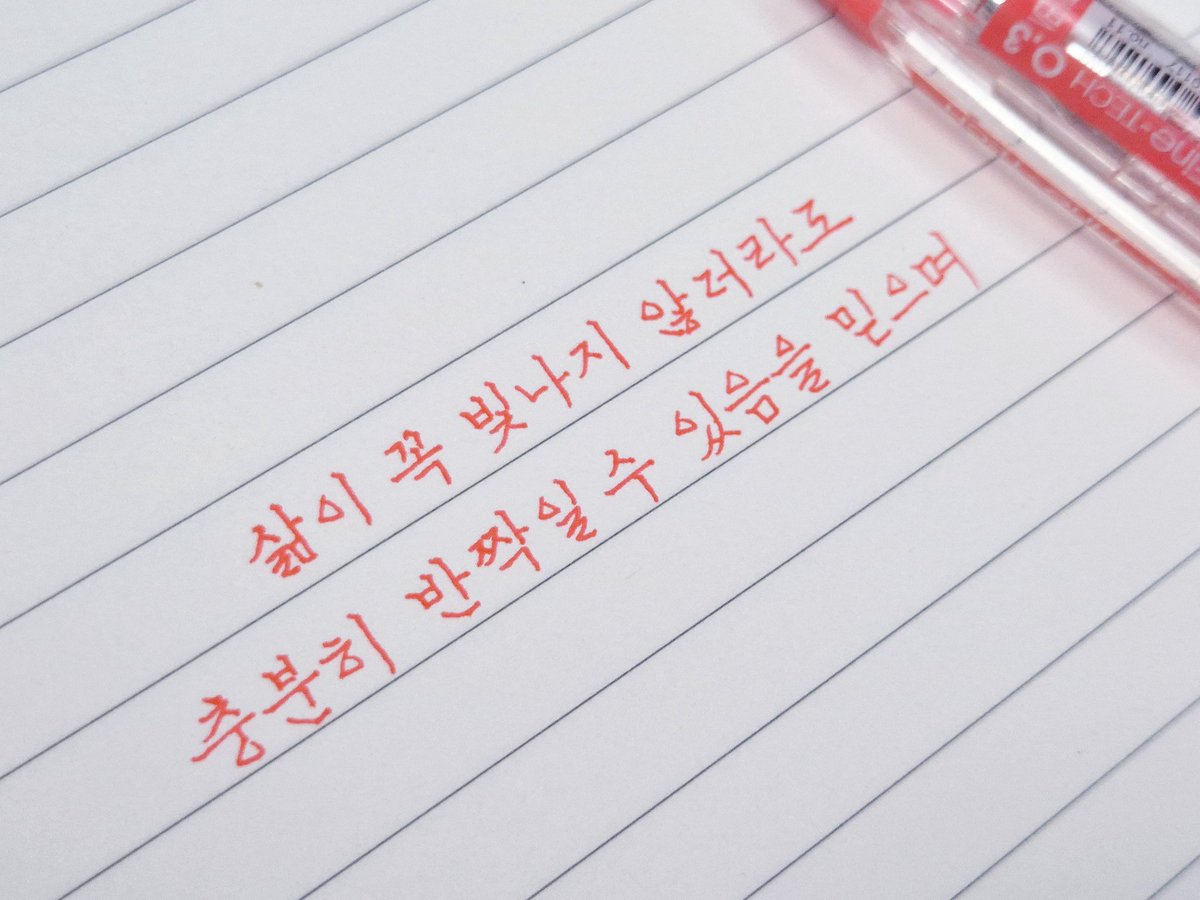 삶이 꼭 빛나지 않더라도
충분히 반짝일 수 있음을 믿으며
Fine-TECH 0.3
no.11